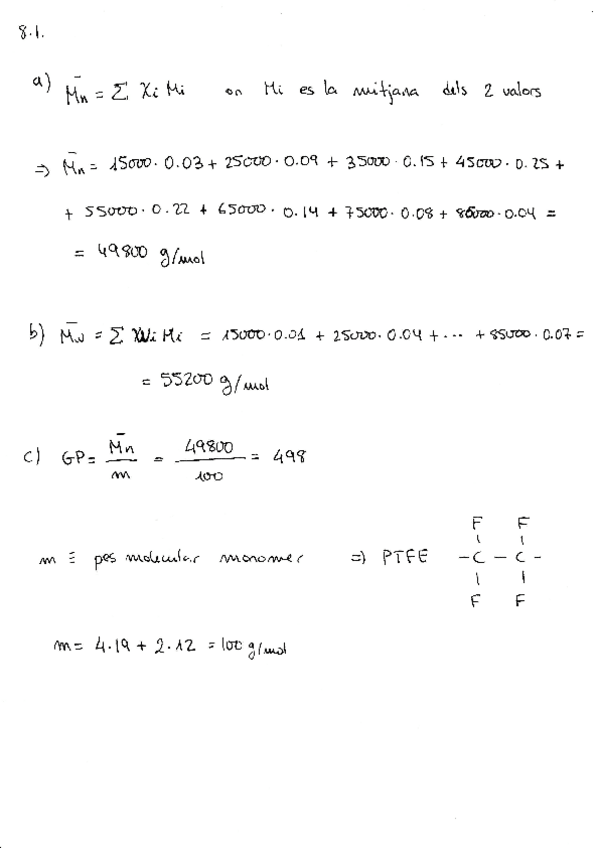 8.1.
a) M̄n = Σ Xi Mi on Mi es la mitjana dels 2 valors
⇒ M̄n = 15000 · 0.03 + 25000 · 0.09 + 35000 · 0.15 + 45000 · 0.25 +
+ 55000 · 0.22 + 65000 · 0.14 + 75000 · 0.08 + 85000 · 0.04 =
= 49800 g/mol
b) M̄w = Σ Wi Mi = 15000 · 0.01 + 25000 · 0.04 + ··· + 85000 · 0.07 =
= 55200 g/mol
c) GP = M̄n / m = 49800 / 100 = 498
F F
m ≡ pes molecular monomer ⇒ PTFE - C - C -
F F
m = 4 · 19 + 2 · 12 = 100 g/mol